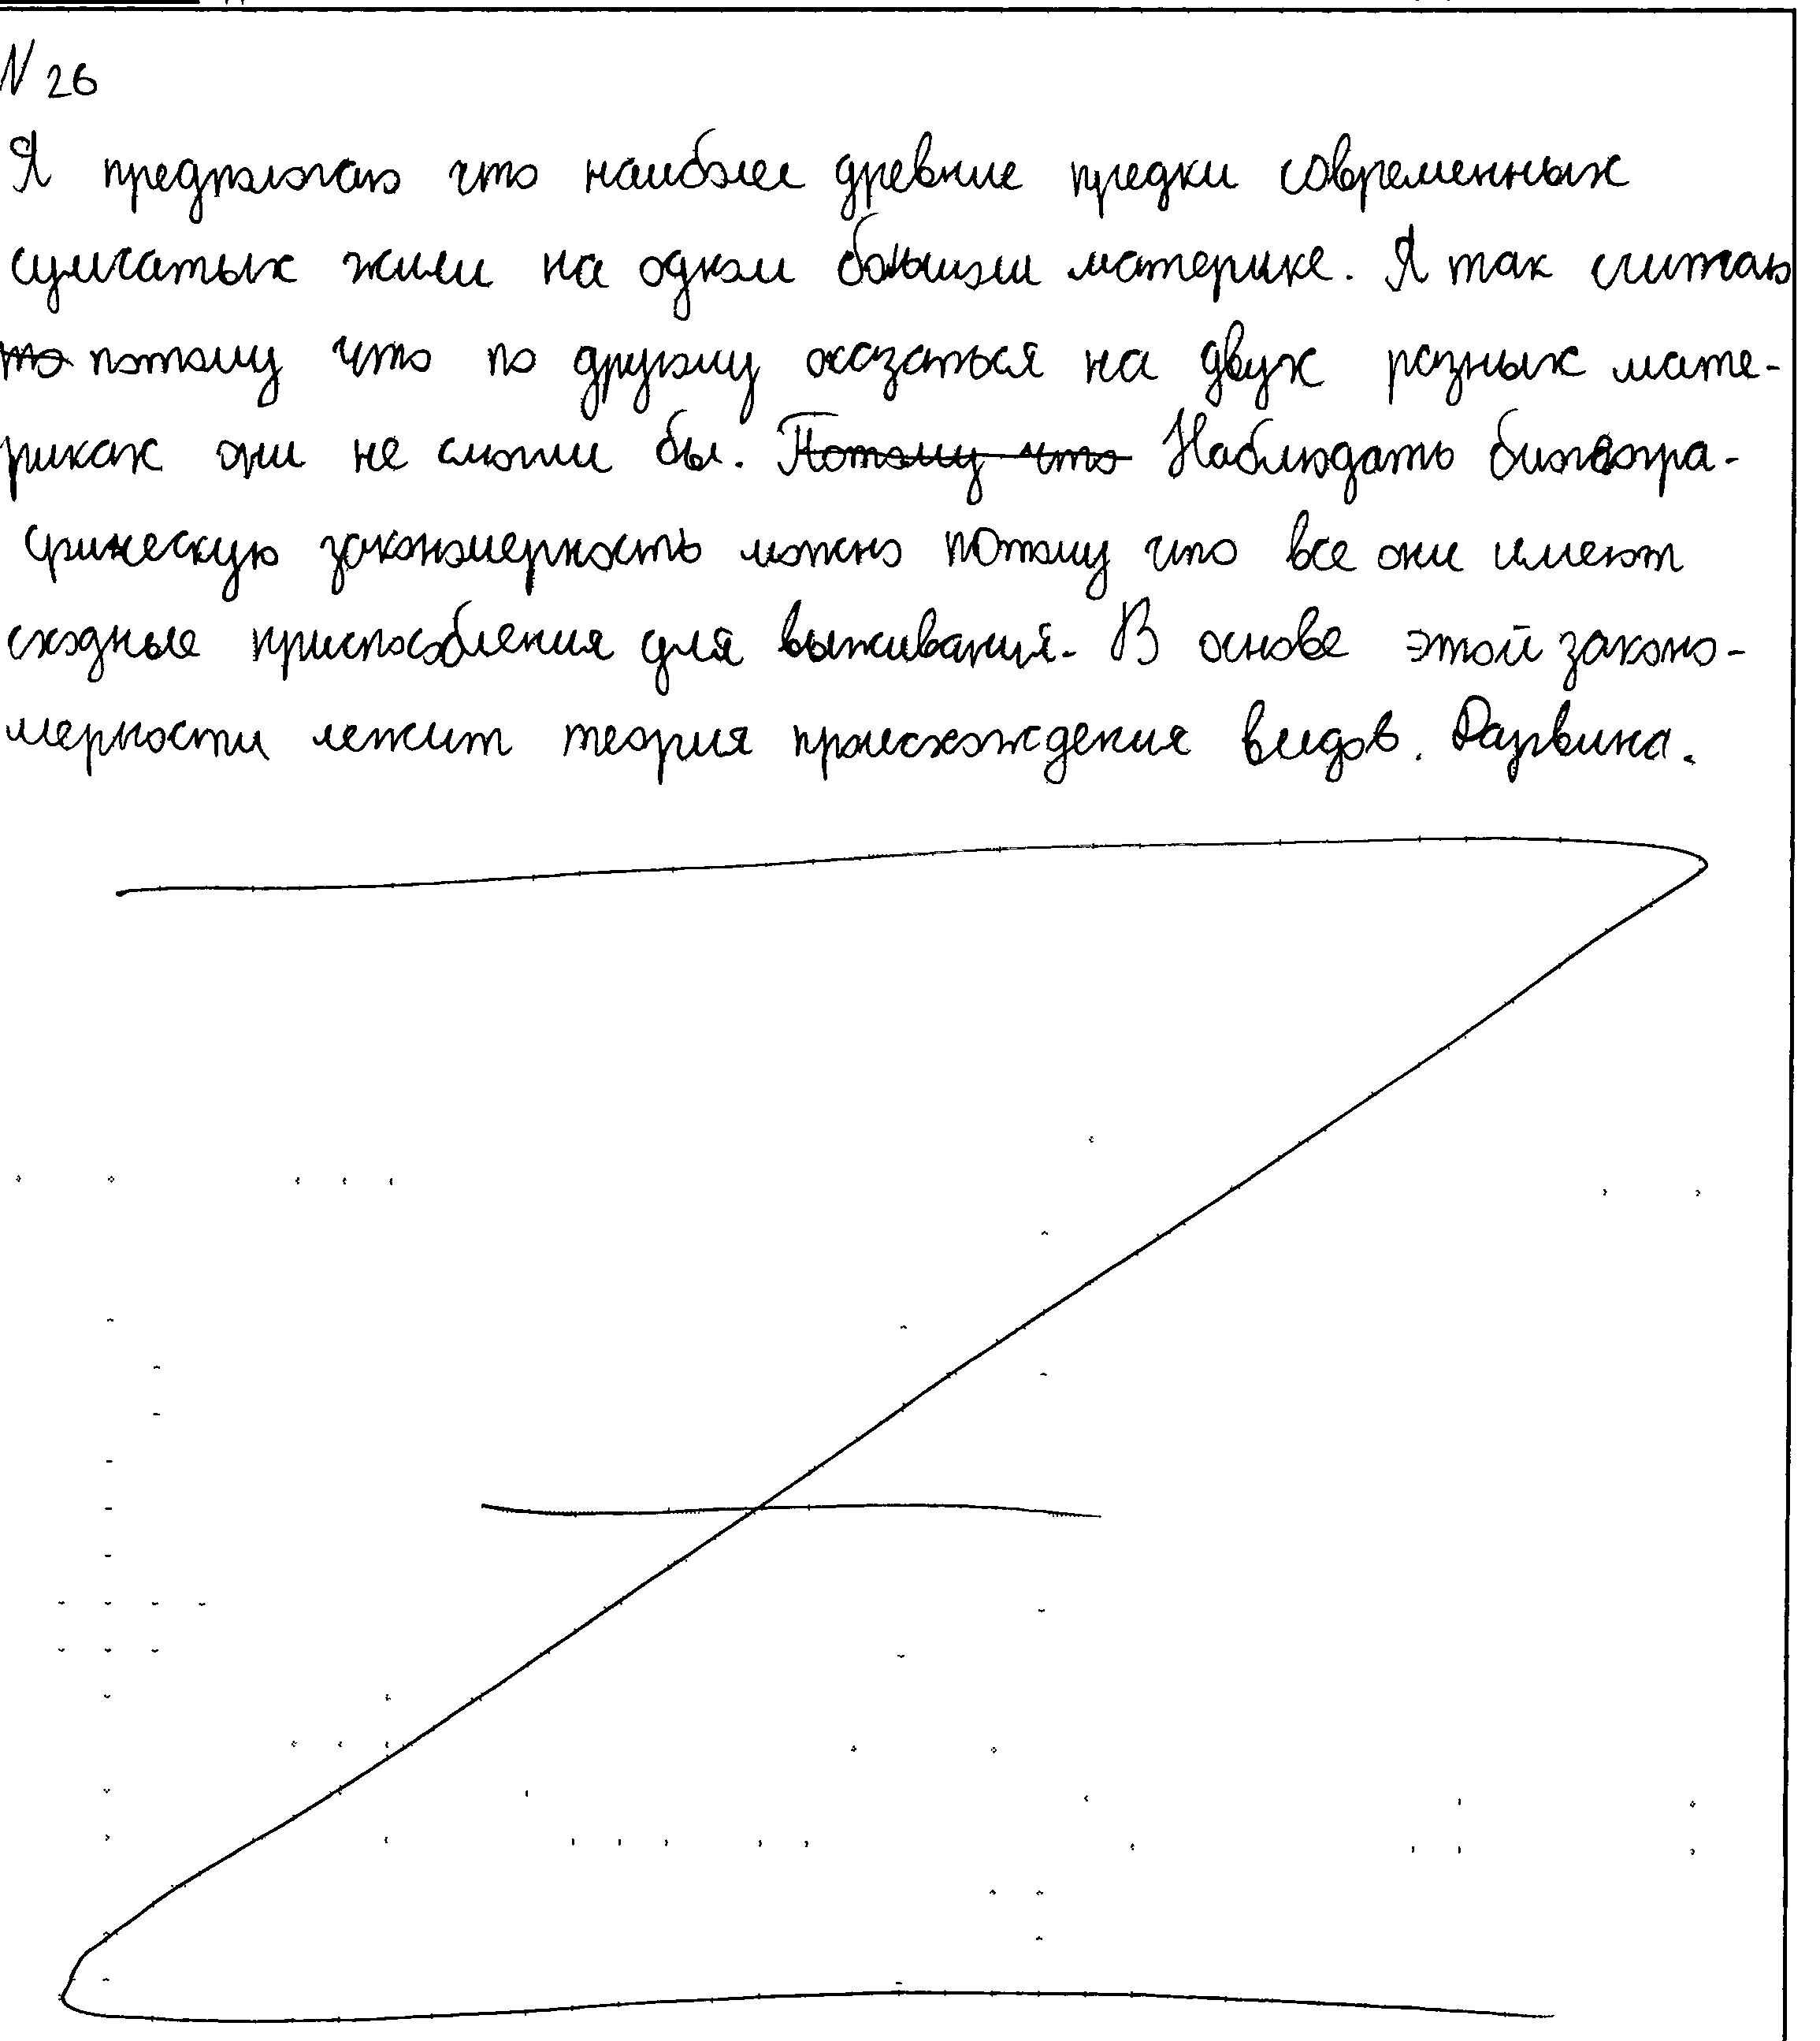 N 26
Я предпологаю что наиболее древние предки современных
сумчатых жили на одном большом материке. Я так считаю
то потому что по другому оказаться на двух разных мате-
риках они не смогли бы. Потому что Наблюдать биогеогра-
фическую закономерность можно потому что все они имеют
сходные приспособления для выживания. В основе этой законо-
мерности лежит теория происхождения видов. Дарвина.